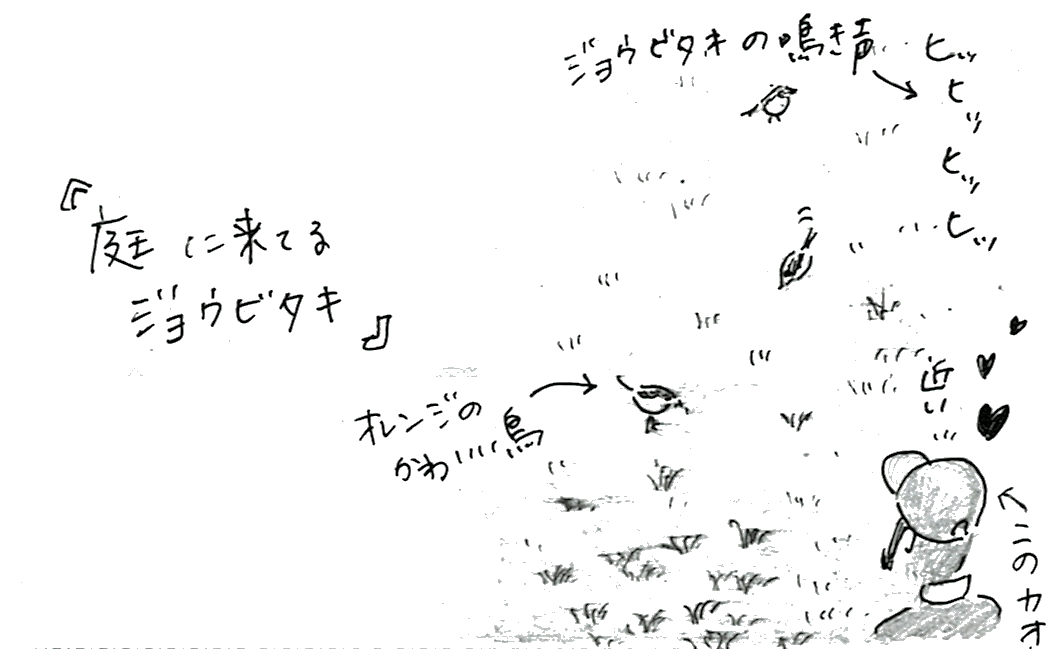 ジョウビタキの鳴き声
ヒッ
ヒッ
ヒッ
ヒッ
『庭に来てる
ジョウビタキ』
オレンジの
かわいい鳥
近い
このカオ